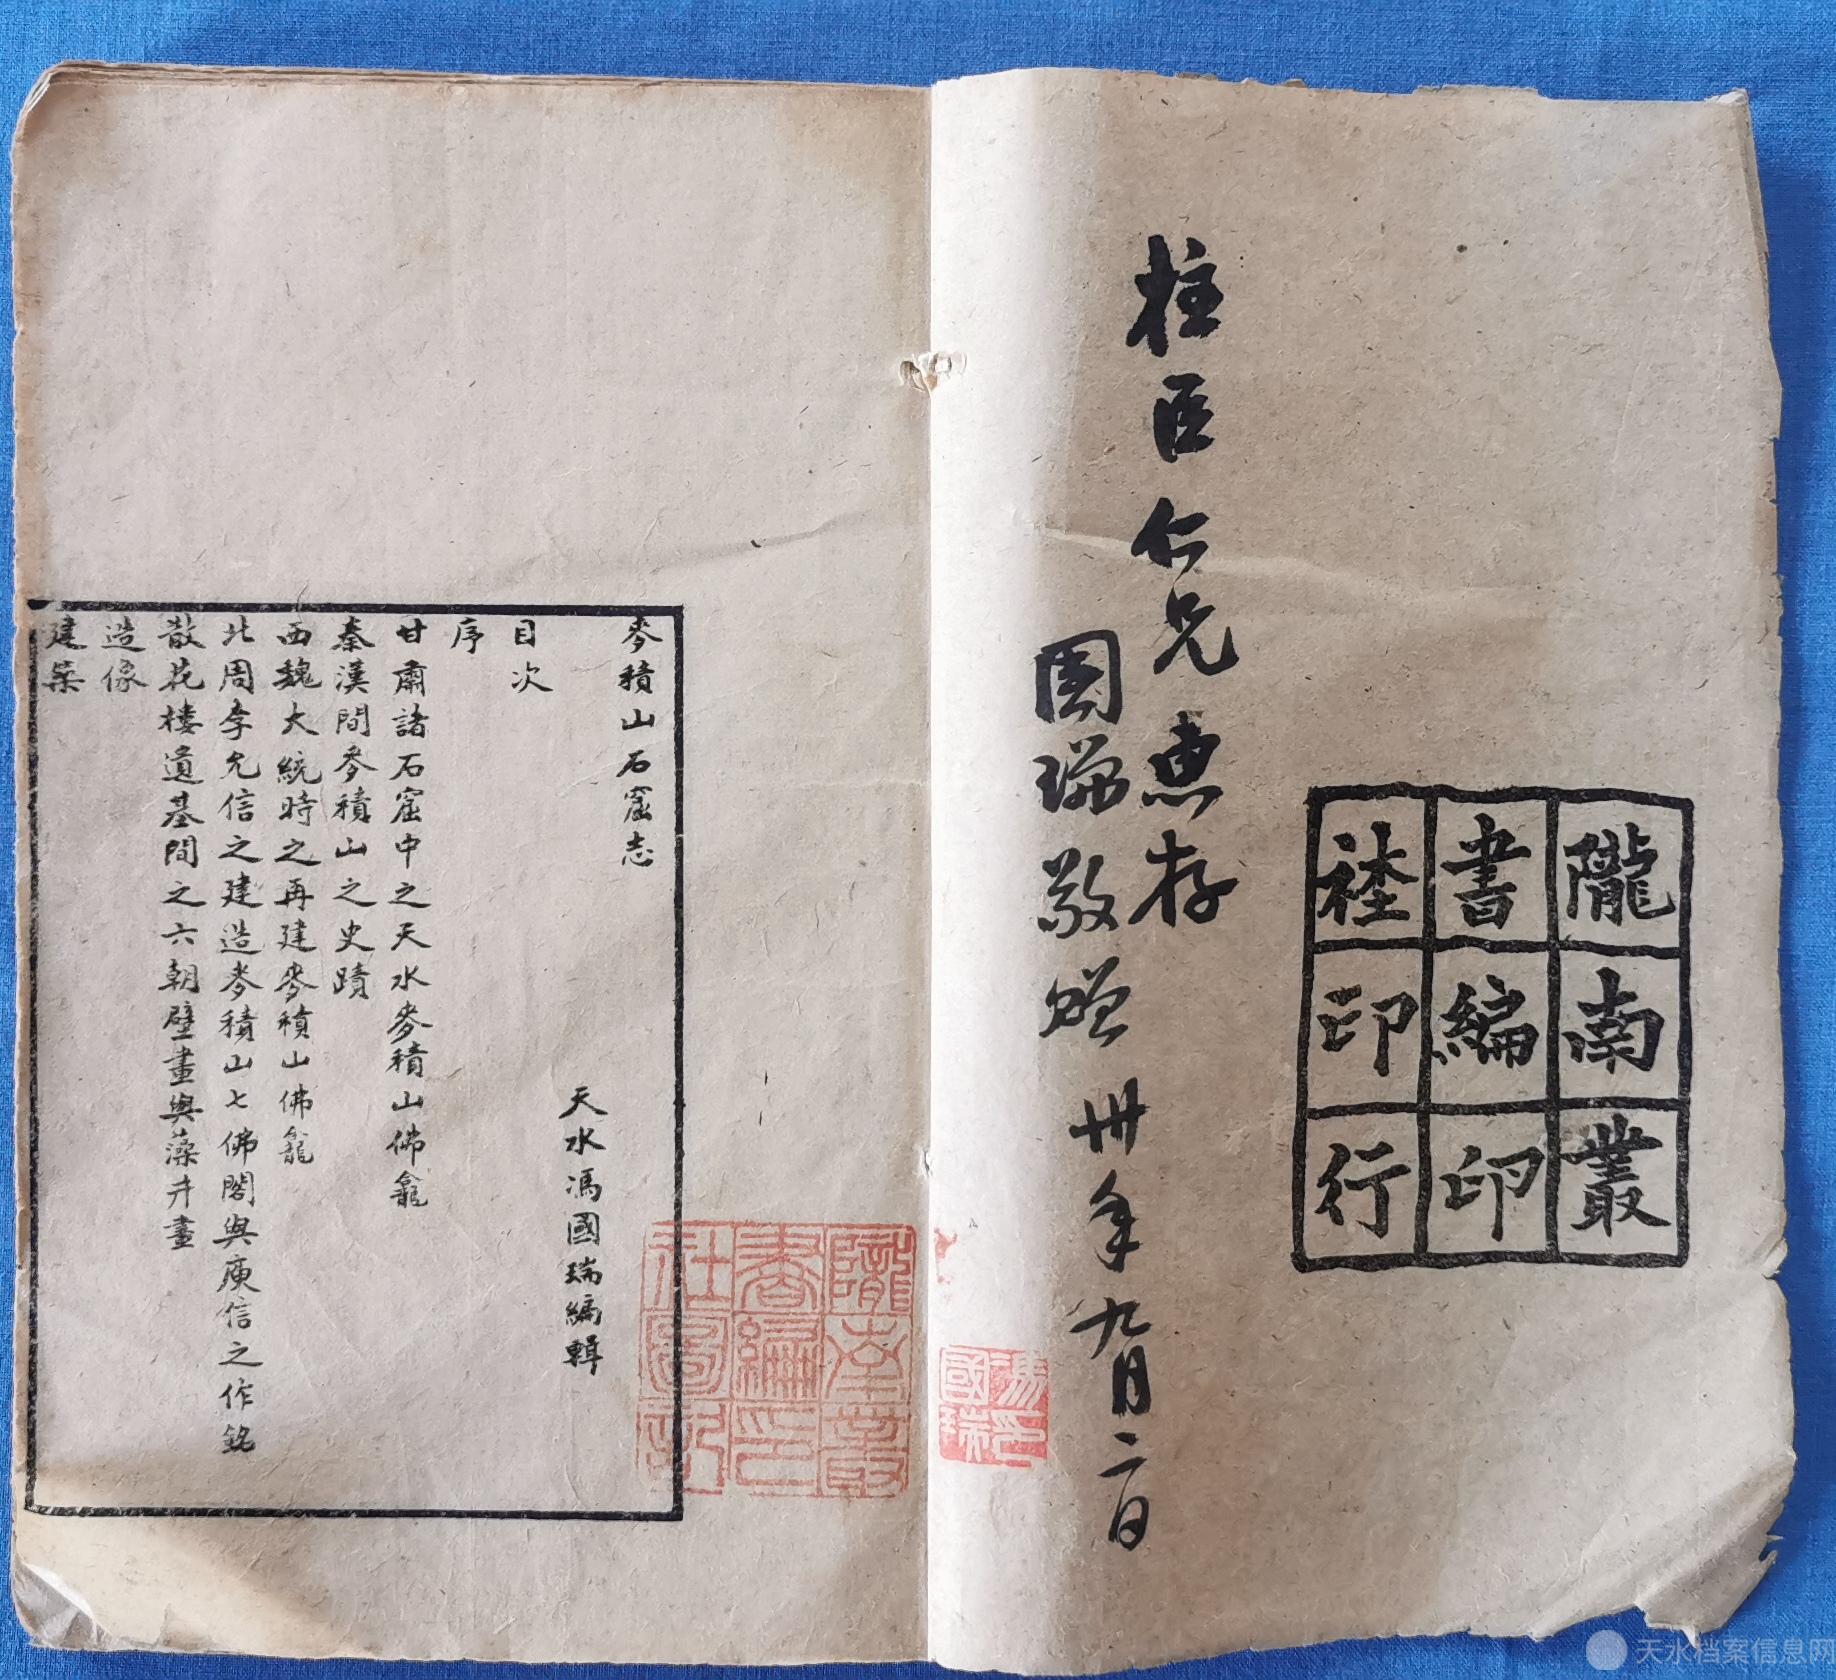 隴南叢
書編印
社印行
柱臣仁兄惠存
國瑞敬贈 卅年九月二日
馮國瑞印
麥積山石窟志
天水馮國瑞編輯
目次
序
甘肅諸石窟中之天水麥積山佛龕
秦漢間麥積山之史蹟
西魏大統時之再建麥積山佛龕
北周李允信之建造麥積山七佛閣與庾信之作銘
散花樓遺基間之六朝壁畫與藻井畫
造像
建築
隴南叢
書編印
社圖記
天水档案信息网